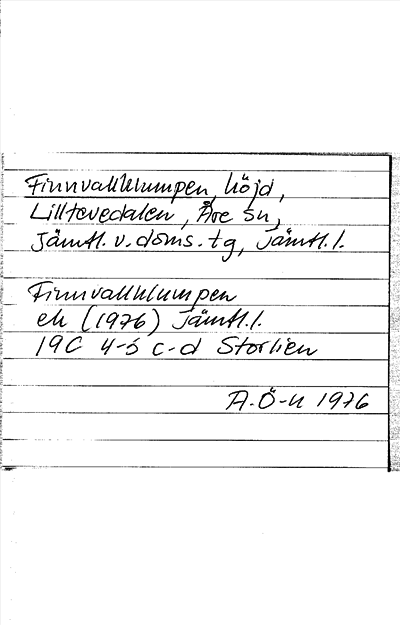 Finnvallklumpen, höjd,
Lilltevedalen, Åre sn,
Jämtl. v. doms. tg, Jämtl. l.
Finnvallklumpen
ek (1976) Jämtl. l.
19C 4-5 c-d Storlien
A. Ö-n 1976